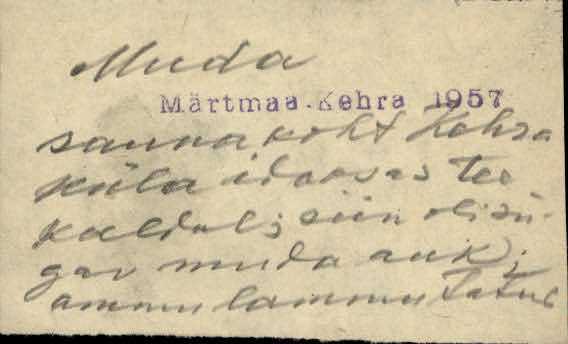 Muda
Märtmaa.Kehra 1957
saunakoht Kehra
küla idaosas tee
kaldal; siin oli sü-
gav muda auk;
ammu lammutatud